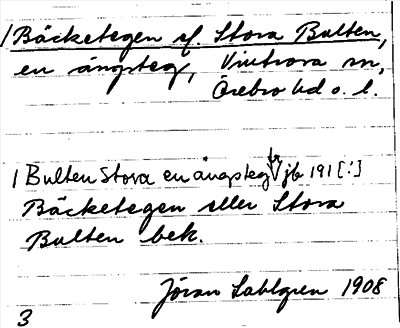 1 Bäcketegen el. Stora Bulten,
en ängsteg, Vintrosa sn,
Örebro hd o. l.
1 Bulten Stora en ängsteg jb 191 [:]
Bäcketegen eller Stora
Bulten bek.
Jöran Sahlgren 1908
3